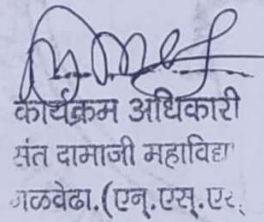 कार्यक्रम अधिकारी
संत दामाजी महाविद्या
गळवेढा.(एन्.एस्.एस्